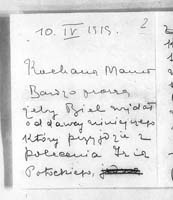 10. IV 1919. 2
Kochana Mamo
Bardzo proszę
żeby Biel wydał
oddawcy niniejszego
który przyjdzie z
polecenia
Potockiego,